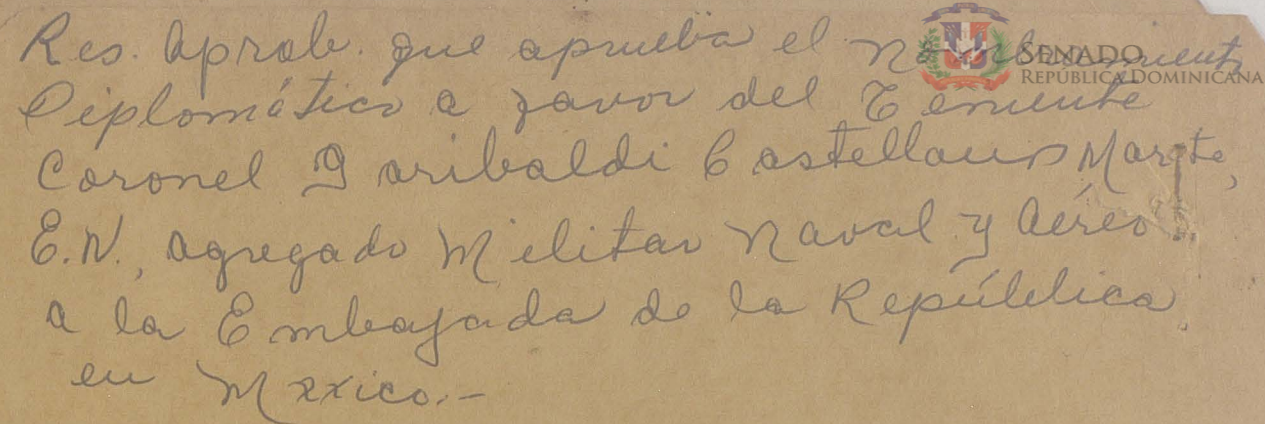 Res. Aprob. que aprueba el nombramiento
Diplomático a favor del Teniente
Coronel Garibaldi Castellanos Marte,
E.N., Agregado Militar Naval y Aéreo
a la Embajada de la República
en México.-
SENADO
REPÚBLICA DOMINICANA